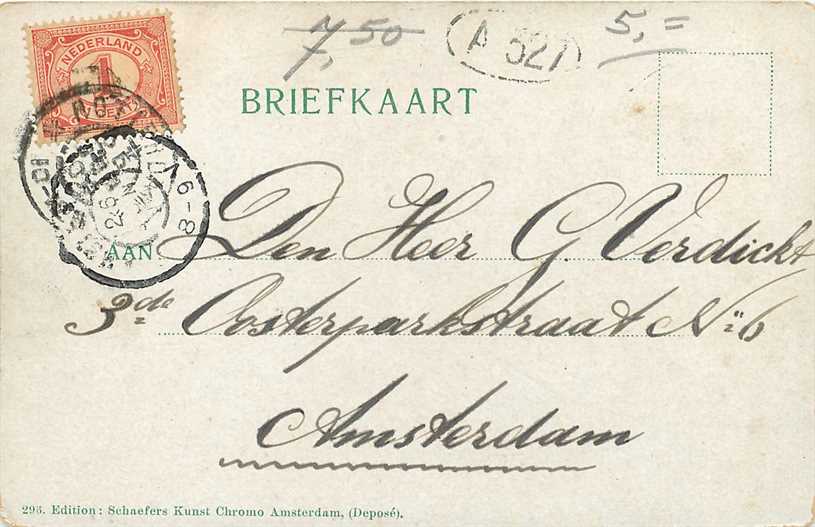 7,50
A 527
5,=
NEDERLAND
1
BRIEFKAART
6-8
AAN
Den Heer G. Verdickt
3de Oosterparkstraat No 6
Amsterdam
293. Edition: Schaefers Kunst Chromo Amsterdam, (Deposé).